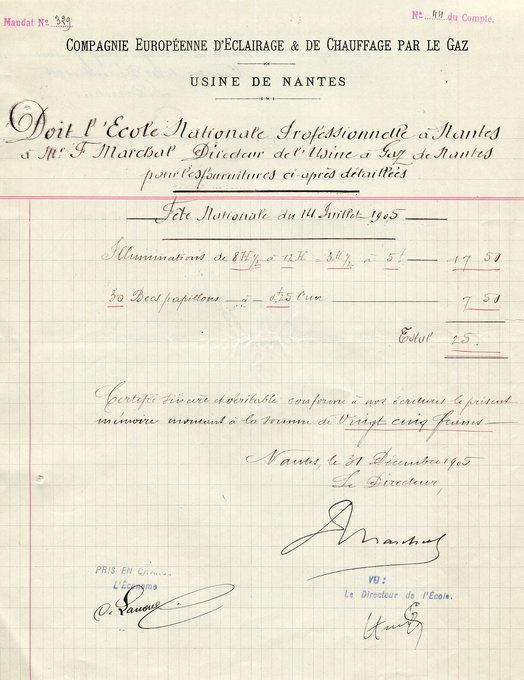 Mandat Nº 329
Nº 44 du Compte.
COMPAGNIE EUROPÉENNE D'ECLAIRAGE & DE CHAUFFAGE PAR LE GAZ
USINE DE NANTES
Doit l'Ecole Nationale Professionnelle à Nantes
à Mr F. Marchal Directeur de l'Usine à Gaz de Nantes
pour les fournitures ci-après détaillées
Fête Nationale du 14 Juillet 1905
Illuminations de 8H½ à 12H = 3H½ à 5f — 17 50
30 Becs papillons — à — 0f25 l'un — 7 50
Total 25.
Certifié sincère et véritable conforme à nos écritures le présent
mémoire montant à la somme de Vingt cinq francs —
Nantes, le 31 Décembre 1905
Le Directeur,
Marchal
PRIS EN CHARGE
L'Econome
VU:
Le Directeur de l'École.